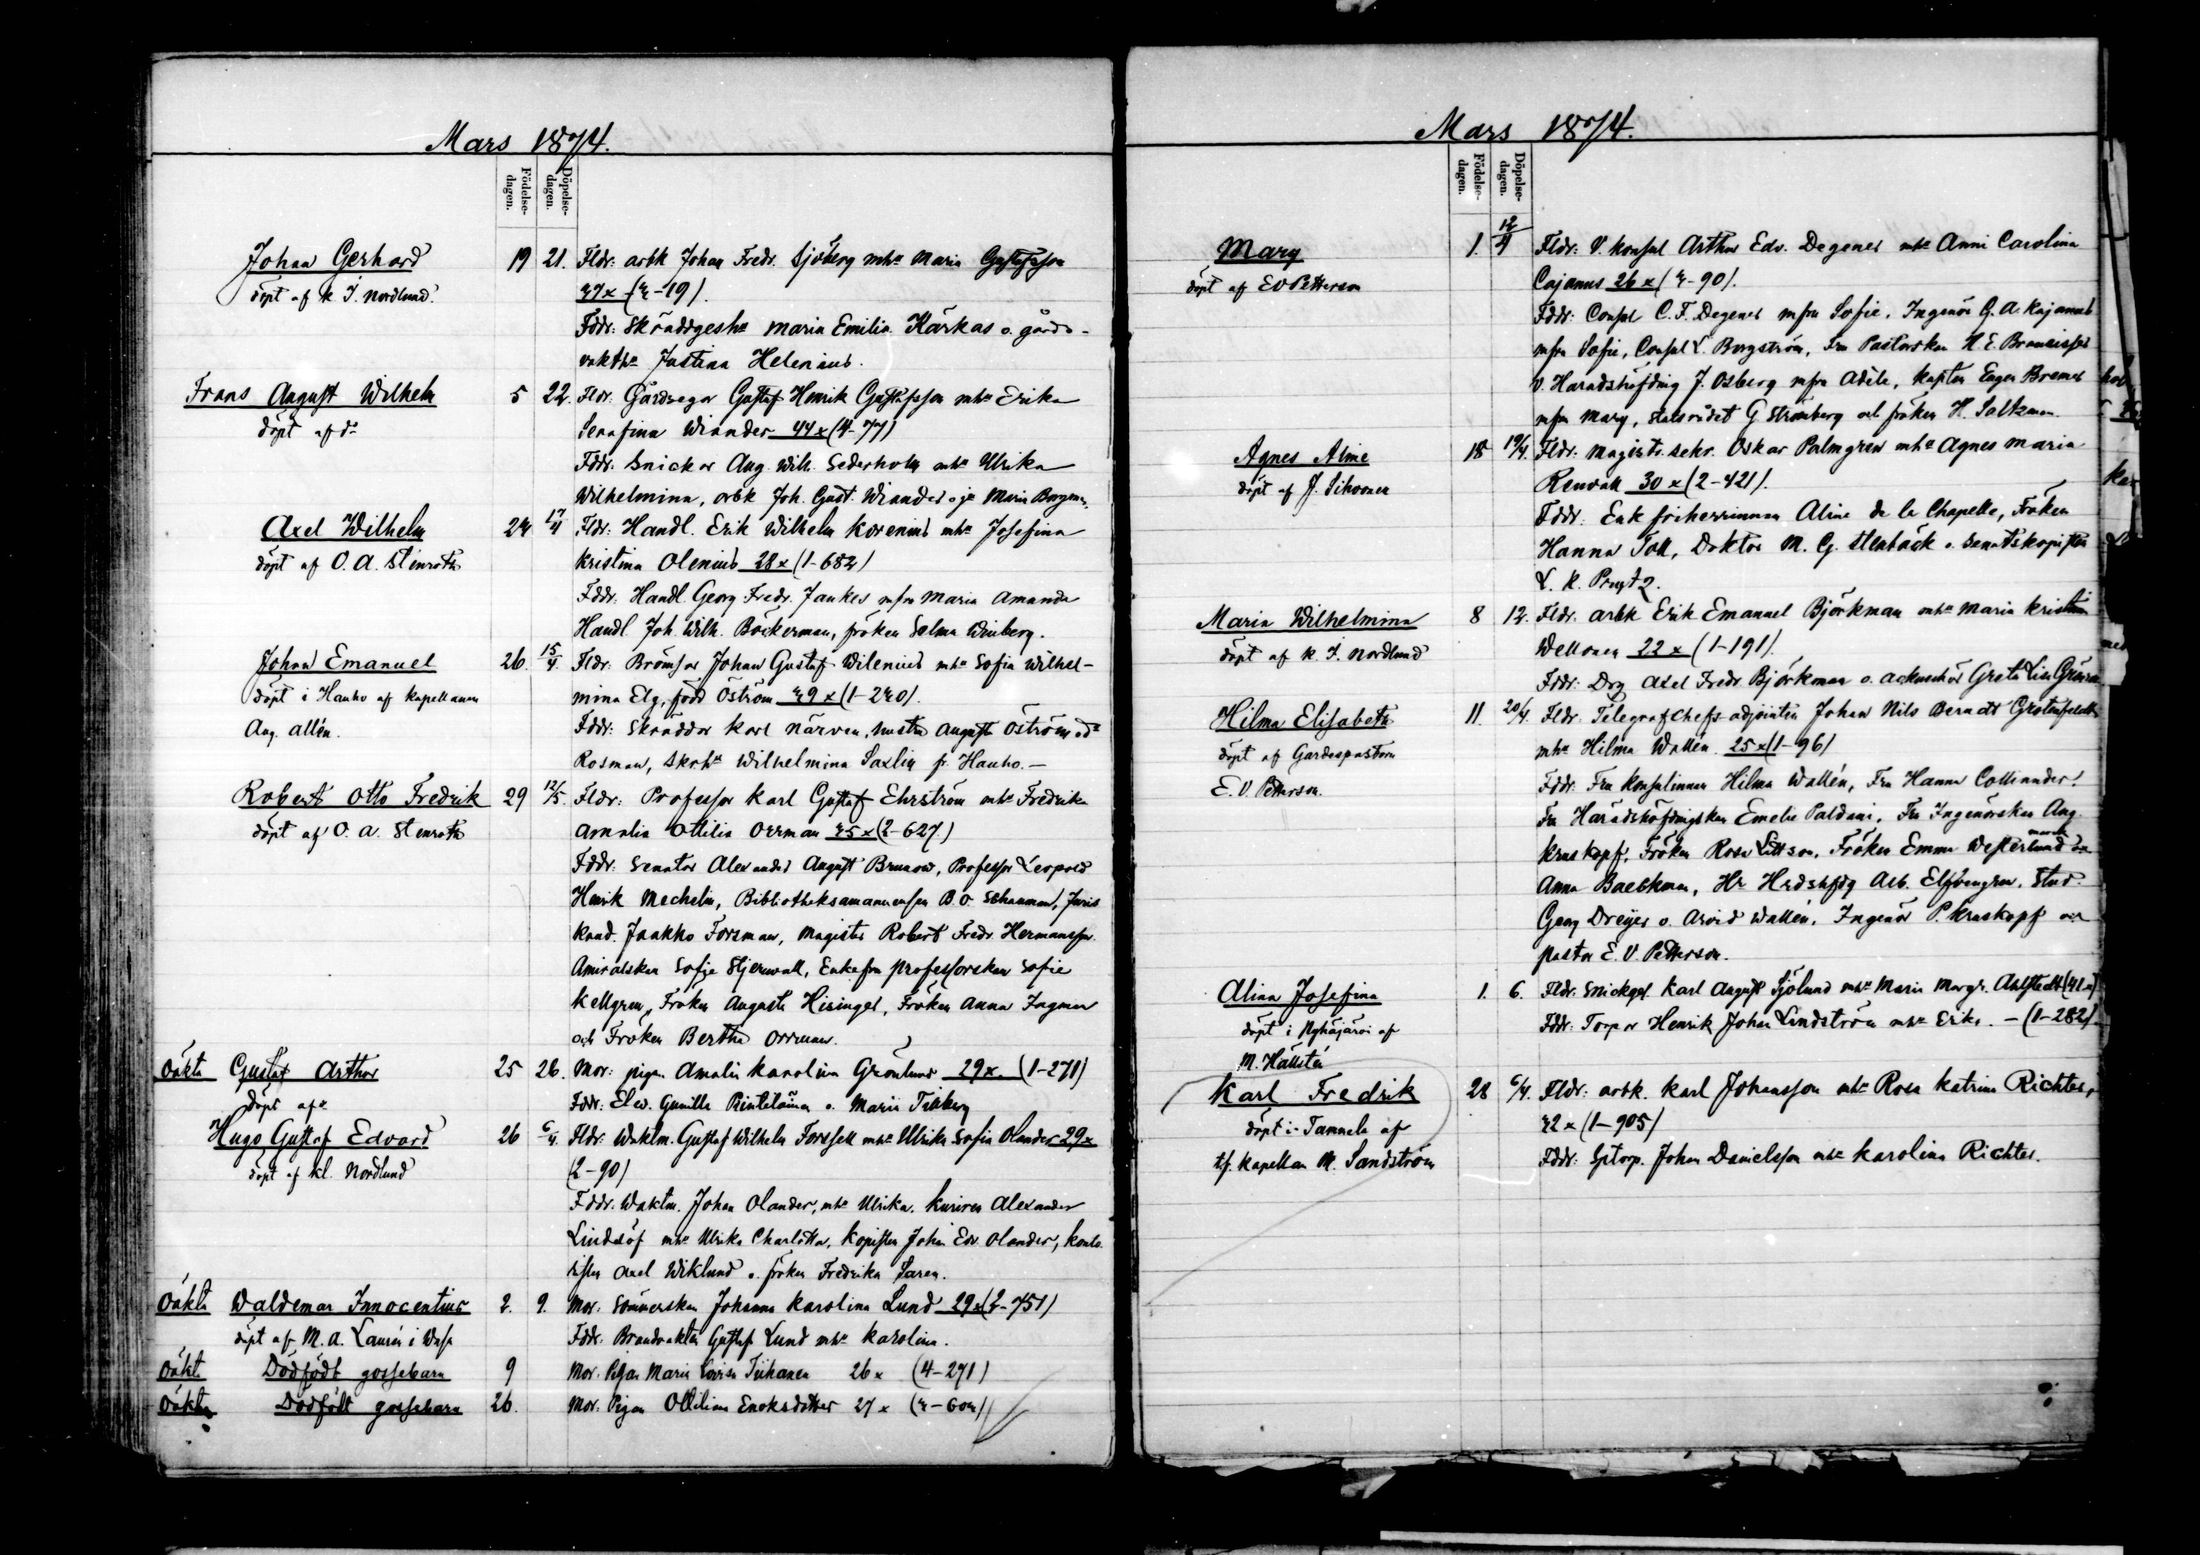 Mars 1874.
Födelse-
dagen.
Döpelse-
dagen.
Johan Gerhard 19 21. Fldr: arbk Johan Fredr. Sjöberg mhu Maria Gustafsson
döpt af K. J. Nordlund. 27 x (2-19).
Fddr: Skräddgesh Maria Emilia Karkas o. gårds-
vakth Justina Helenius.
Frans August Wilhelm 5 22. Fldr: Gårdsegor Gustaf Henrik Gustafsson mhu Erika
döpt af do Serafina Wiander 44 x (4-77)
Fddr: Snickar Aug. Wilh. Sederholm mhu Ulrika
Wilhelmina, arbk Joh. Gust. Wiander o. ja Maria
Axel Wilhelm 24 17/4 Fldr: Handl. Erik Wilhelm Korenius mhu Josefina
döpt af O. A. Stenroth Kristina Olenius 28 x (1-682)
Fddr: Handl. Georg Fredr. Jankes mfru Maria Amanda
Handl. Joh. Wilh. Böckerman, fröken Selma Winberg.
Johan Emanuel 26. 15/4. Fldr: Bromsar Johan Gustaf Wilenius mhu Sofia Wilhel-
döpt i Hauho af kapellanen mina Elg, född Öström 29 x (1-220).
Aug. Allén. Fddr: Skräddar Karl Närven, hustru Augusta Öström
Rosman, Wilhelmina Saxlin fr. Hauho.-
Robert Otto Fredrik 29 12/5 Fldr: Professor Karl Gustaf Ehrström mhu Fredrika
döpt af O. A. Stenroth Amalia Ottilia Orrman 25 x (2-627)
Fddr: Senator Alexander August Brunow, Professor Leopold
Henrik Mechelin, Biblioteksamanuensen B. O. Schauman, Juris
kand. Jaakko Forsman, Magister Robert Fredr. Hermansson.
Amiralskan Sofie Stjernvall, Enkefru professorskan Sofie
Kellgren, Fröken Augusta Hisinger, Fröken Anna Ingman
och Fröken Bertha Orrman.
Oäkta Gustaf Arthur 25 26. Mor: pigan Amalia Karolina Grönlund 29 x. (1-271)
döpt af Fddr: Elev. Gunilla o. Maria
Hugo Gustaf Edvard 26 6/4. Fldr: Waktm. Gustaf Wilhelm Forssell mhu Ulrika Sofia Olander 29 x
döpt af Kl. Nordlund (2-90)
Fddr: Waktm. Johan Olander, mhu Ulrika, kuriren Alexander
Lindelöf mhu Ulrika Charlotta, Kopisten Johan Edv. Olander, konto-
risten Axel Wiklund o. fröken Fredrika Saren.
Oäkta Waldemar Innocentius 2. 9. Mor: Sömmerskan Johanna Karolina Lund 29 x (2-751)
döpt af M. A. Laurén i Wasa Fddr: Brandvakten Gustaf Lund mhu Karolina.
Oäkt. Dödfödt gossebarn 9 Mor: Pigan Maria Lovisa Tiihanen 26 x (4-271)
Oäkta Dödfödt gossebarn 26. Mor: Pigan Ottiliana Enoksdotter 27 x (2-602)
Mars 1874.
Födelse-
dagen.
Döpelse-
dagen.
Mary 1. 12/4 Fldr: V. konsul Arthur Edv. Degener mhu Anni Carolina
döpt af E V Petterson Cajanus 26 x (2-90).
Fddr: Consul C. F. Degener mfru Sofie, Ingenör G. A. Kajanus
mfru Sofie, Consul L. Borgström, Fru Pastorskan H. E.
v. Häradshöfding J. Osberg mfru Adèle, kapten Eugen Bremer
mfru Mary, Statsrådet G Strömberg och fröken H. Saltzman.
Agnes Aline 18 19/4. Fldr: Magistr. sekr. Oskar Palmgren mhu Agnes Maria
döpt af J. Sihvonen Renvall 30 x (2-421).
Fddr: Enk friherrinnan Aline de la Chapelle, Fröken
Hanna Toll, Doktor M. G. Stenbäck o. Senatskopisten
L. K.
Maria Wilhelmina 8 12. Fldr: arbk Erik Emanuel Björkman mhu Maria Kristina
döpt af K. J. Nordlund Wellonen 22 x (1-191).
Fddr: Drg Axel Fredr. Björkman o. Greta Lisa
Hilma Elisabeth 11. 20/4. Fldr: Telegrafchefs-adjointen Johan Nils Berndt Grotenfeldt
döpt af Gardespastorn mhu Hilma Wallén 25 x (1-96)
E. V. Petterson. Fddr: Fru Konsulinnan Hilma Wallén, Fru Hanna Colliander.
Fru Häradshöfdingskan Emelie Paldani, Fru Ingenörskan Aug.
Kruskopf, Fröken Rosa Littson, Fröken Emma Westermarck o.
Anna Baeckman, Hr Hrdshfdg Alb. Elfvengren, Stud.
Georg Dreijer o. Arvid Wallén, Ingenör P. Kruskopf och
pastor E. V. Petterson.
Alina Josefina 1. 6. Fldr: Snickges. Karl August Sjölund mhu Maria Margr. Ahlstedt (41 x)
döpt i af Fddr: Torpar Henrik Johan Lindström mhu Erika. - (1-282).
M. Hällstén
Karl Fredrik 28 6/4. Fldr: arbk. Karl Johansson mhu Rosa Katrina Richter,
döpt i Tammela af 22 x (1-905)
tf. kapellan M. Sandström Fddr: Sptorp. Johan Danielsson mhu Karolina Richter.